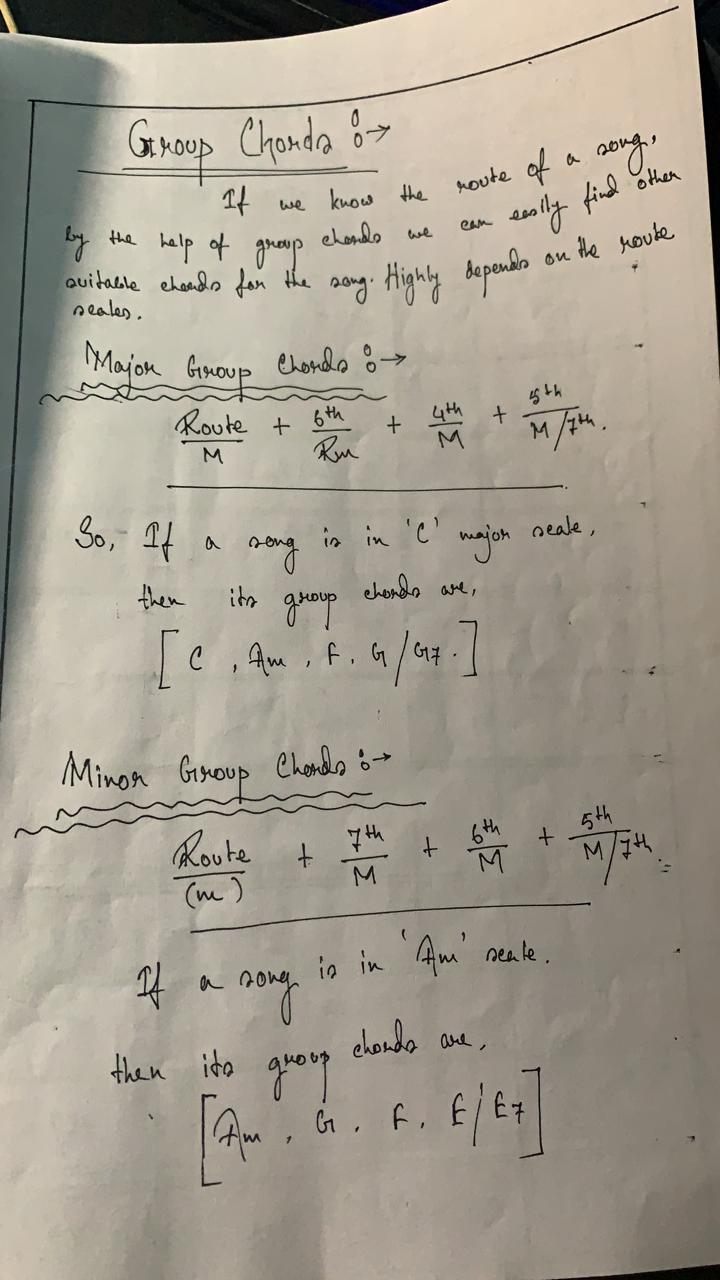 Group Chords :→
If we know the route of a song,
by the help of group chords we can easily find other
suitable chords for the song. Highly depends on the route
scales.
Major Group Chords :→
Route/M + 6th/Rm + 4th/M + 5th/M/7th.
So, If a song is in 'C' major scale,
then its group chords are,
[ C , Am , F , G/G7 . ]
Minor Group Chords :→
Route/(m) + 7th/M + 6th/M + 5th/M/7th.
If a song is in 'Am' scale.
then its group chords are,
[ Am , G , F , E/E7 ]